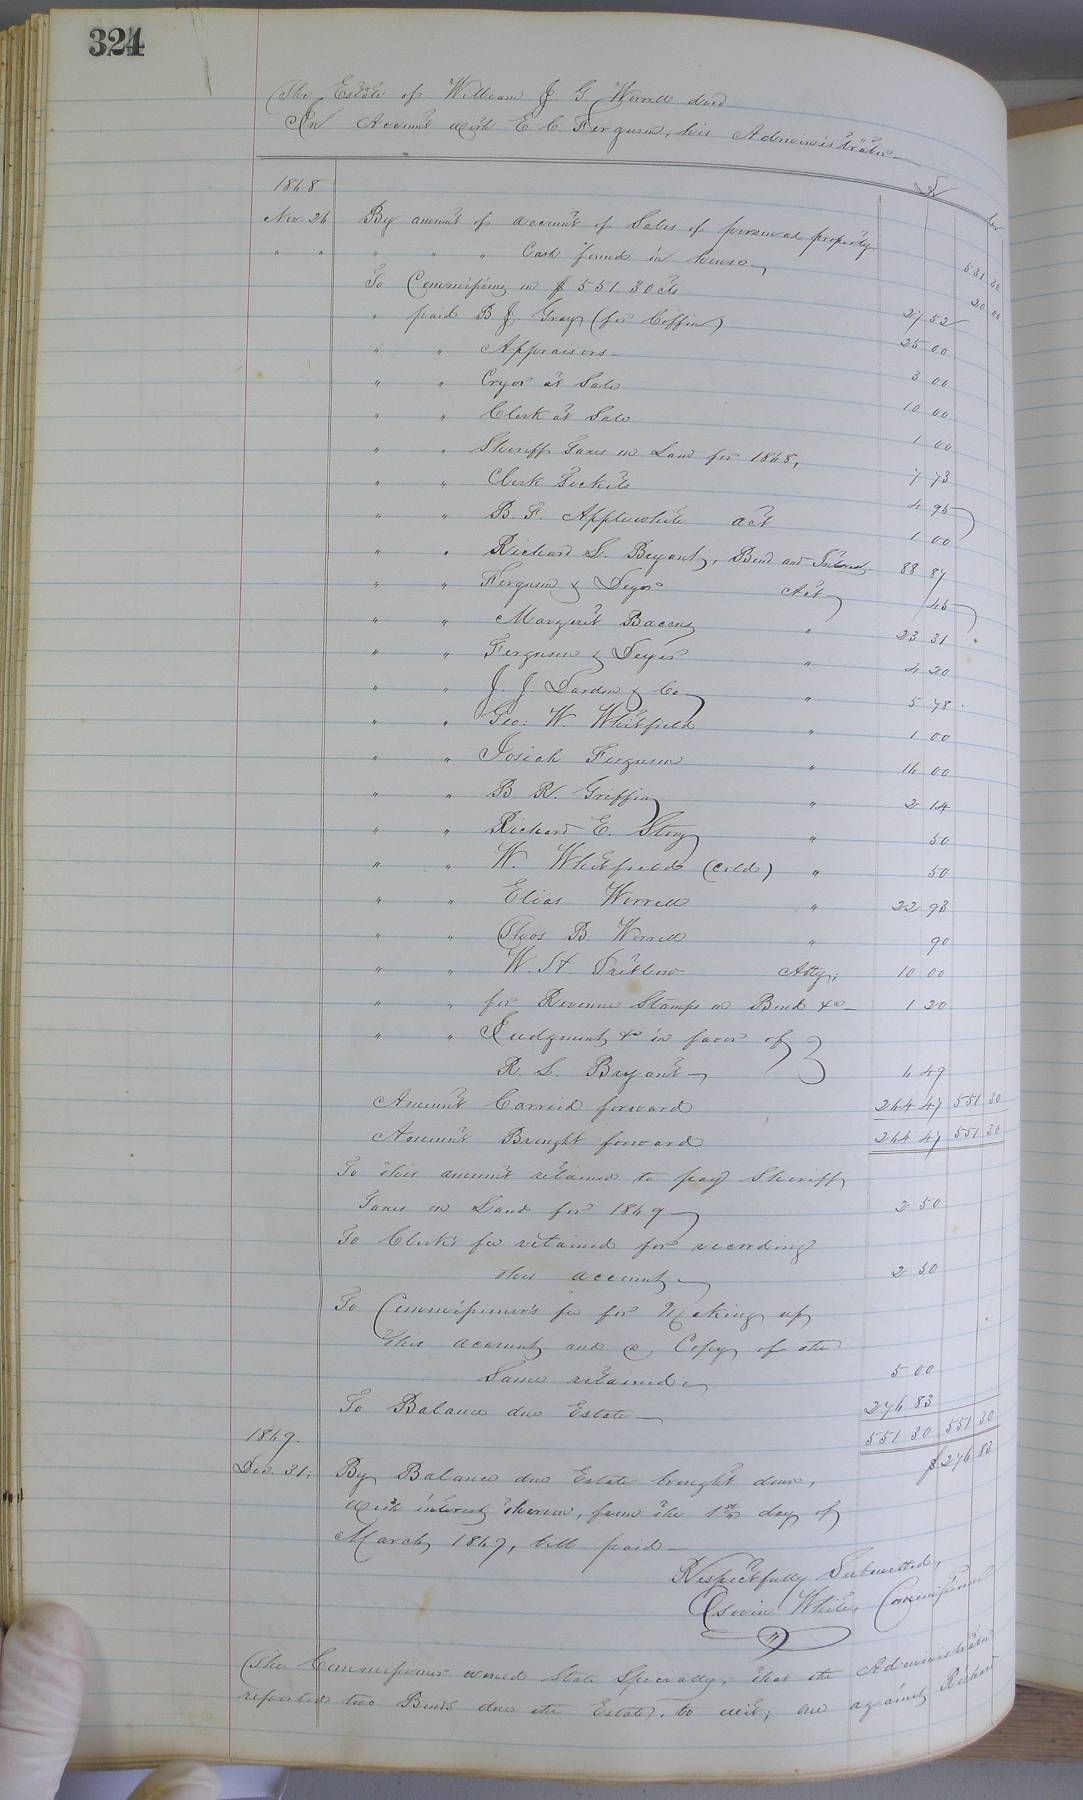 324
The Estate of William J. G. Worrell decd
In Account with E. C. Ferguson, his Administrator
Dr Cr
1868
Nov. 26 By amount of account of Sales of personal property 531 30
" " " " " Cash found in house 20 00
To Commissions on $551.30 cts 27 52
" paid B. J. Gray (for Coffin) 25 00
" " Appraisers 3 00
" " Cryer at Sale 10 00
" " Clerk at Sale 1 00
" " Sheriff Taxes on Land for 1868, 7 73
" " Clerk Tickets 4 95
" " B. F. Applewhite act 1 00
" " Richard L. Bryant, Bond and Interest 88 87
" " Ferguson & Deyer Act 46
" " Margaret Bacon " 23 31
" " Ferguson & Deyer " 4 20
" " J. J. Darden & Co " 5 78
" " Geo: W. Whitfield " 1 00
" " Josiah Ferguson " 16 00
" " B. R. Griffin " 2 14
" " Richard E. Story " 50
" " W. Whitfield (Cold) " 50
" " Elias Worrell " 22 93
" " Thos B. Worrell " 90
" " W. H. Pretlow Atty; 10 00
" " for Revenue Stamps on Bond &c 1 20
" " Judgment &c in favor of }
R. L. Bryant 6 49
Amount Carried forward 264 47 551 30
Amount Brought forward 264 47 551 30
To this amount retained to pay Sheriff
Taxes on Land for 1869 2 50
To Clerk's fee retained for recording
this account 2 50
To Commissioner's fee for Making up
this account and a Copy of the
Same retained 5 00
To Balance due Estate 276 83
551 30 551 30
1869.
Dec. 31; By Balance due Estate brought down, $276 83
with interest thereon, from the 1st day of
March 1869, till paid
Respectfully Submitted,
Oswin White, Commissioner
The Commissioner would State Specially, that the Administrator
reported two Bonds due the Estate, to wit; one against Richard